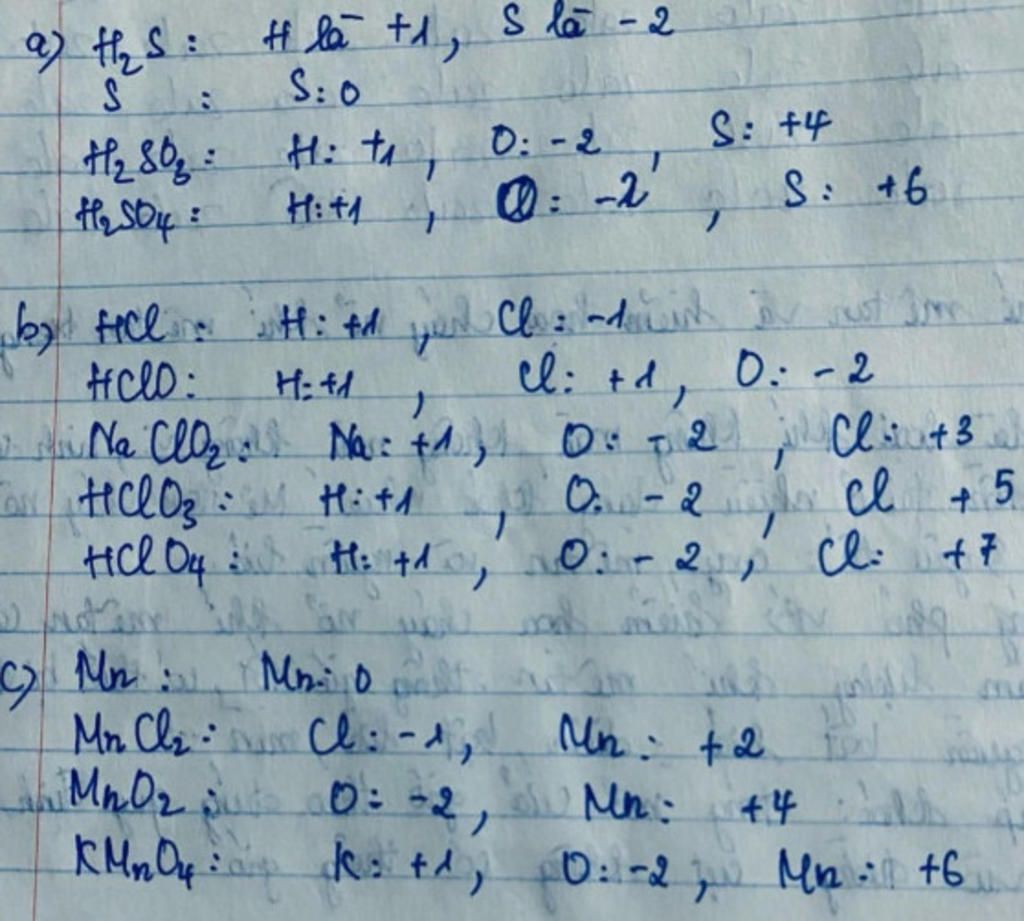 a) H₂S : H là +1, S là -2
S : S: 0
H₂SO₃ : H: +1, O: -2, S: +4
H₂SO₄ : H: +1, O: -2, S: +6
b) HCl : H: +1, Cl: -1
HClO : H: +1, Cl: +1, O: -2
NaClO₂ : Na: +1, O: -2, Cl: +3
HClO₃ : H: +1, O: -2, Cl +5
HClO₄ : H: +1, O: -2, Cl: +7
c) Mn : Mn: 0
MnCl₂ : Cl: -1, Mn: +2
MnO₂ : O: -2, Mn: +4
KMnO₄ : K: +1, O: -2, Mn: +6